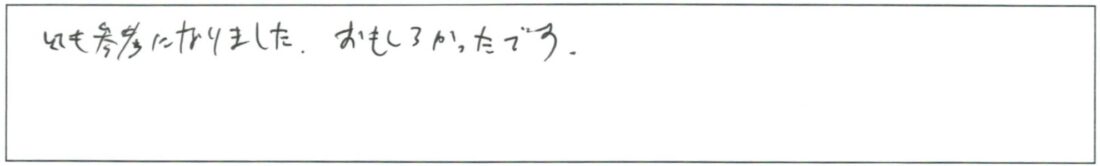 とても参考になりました. おもしろかったです.